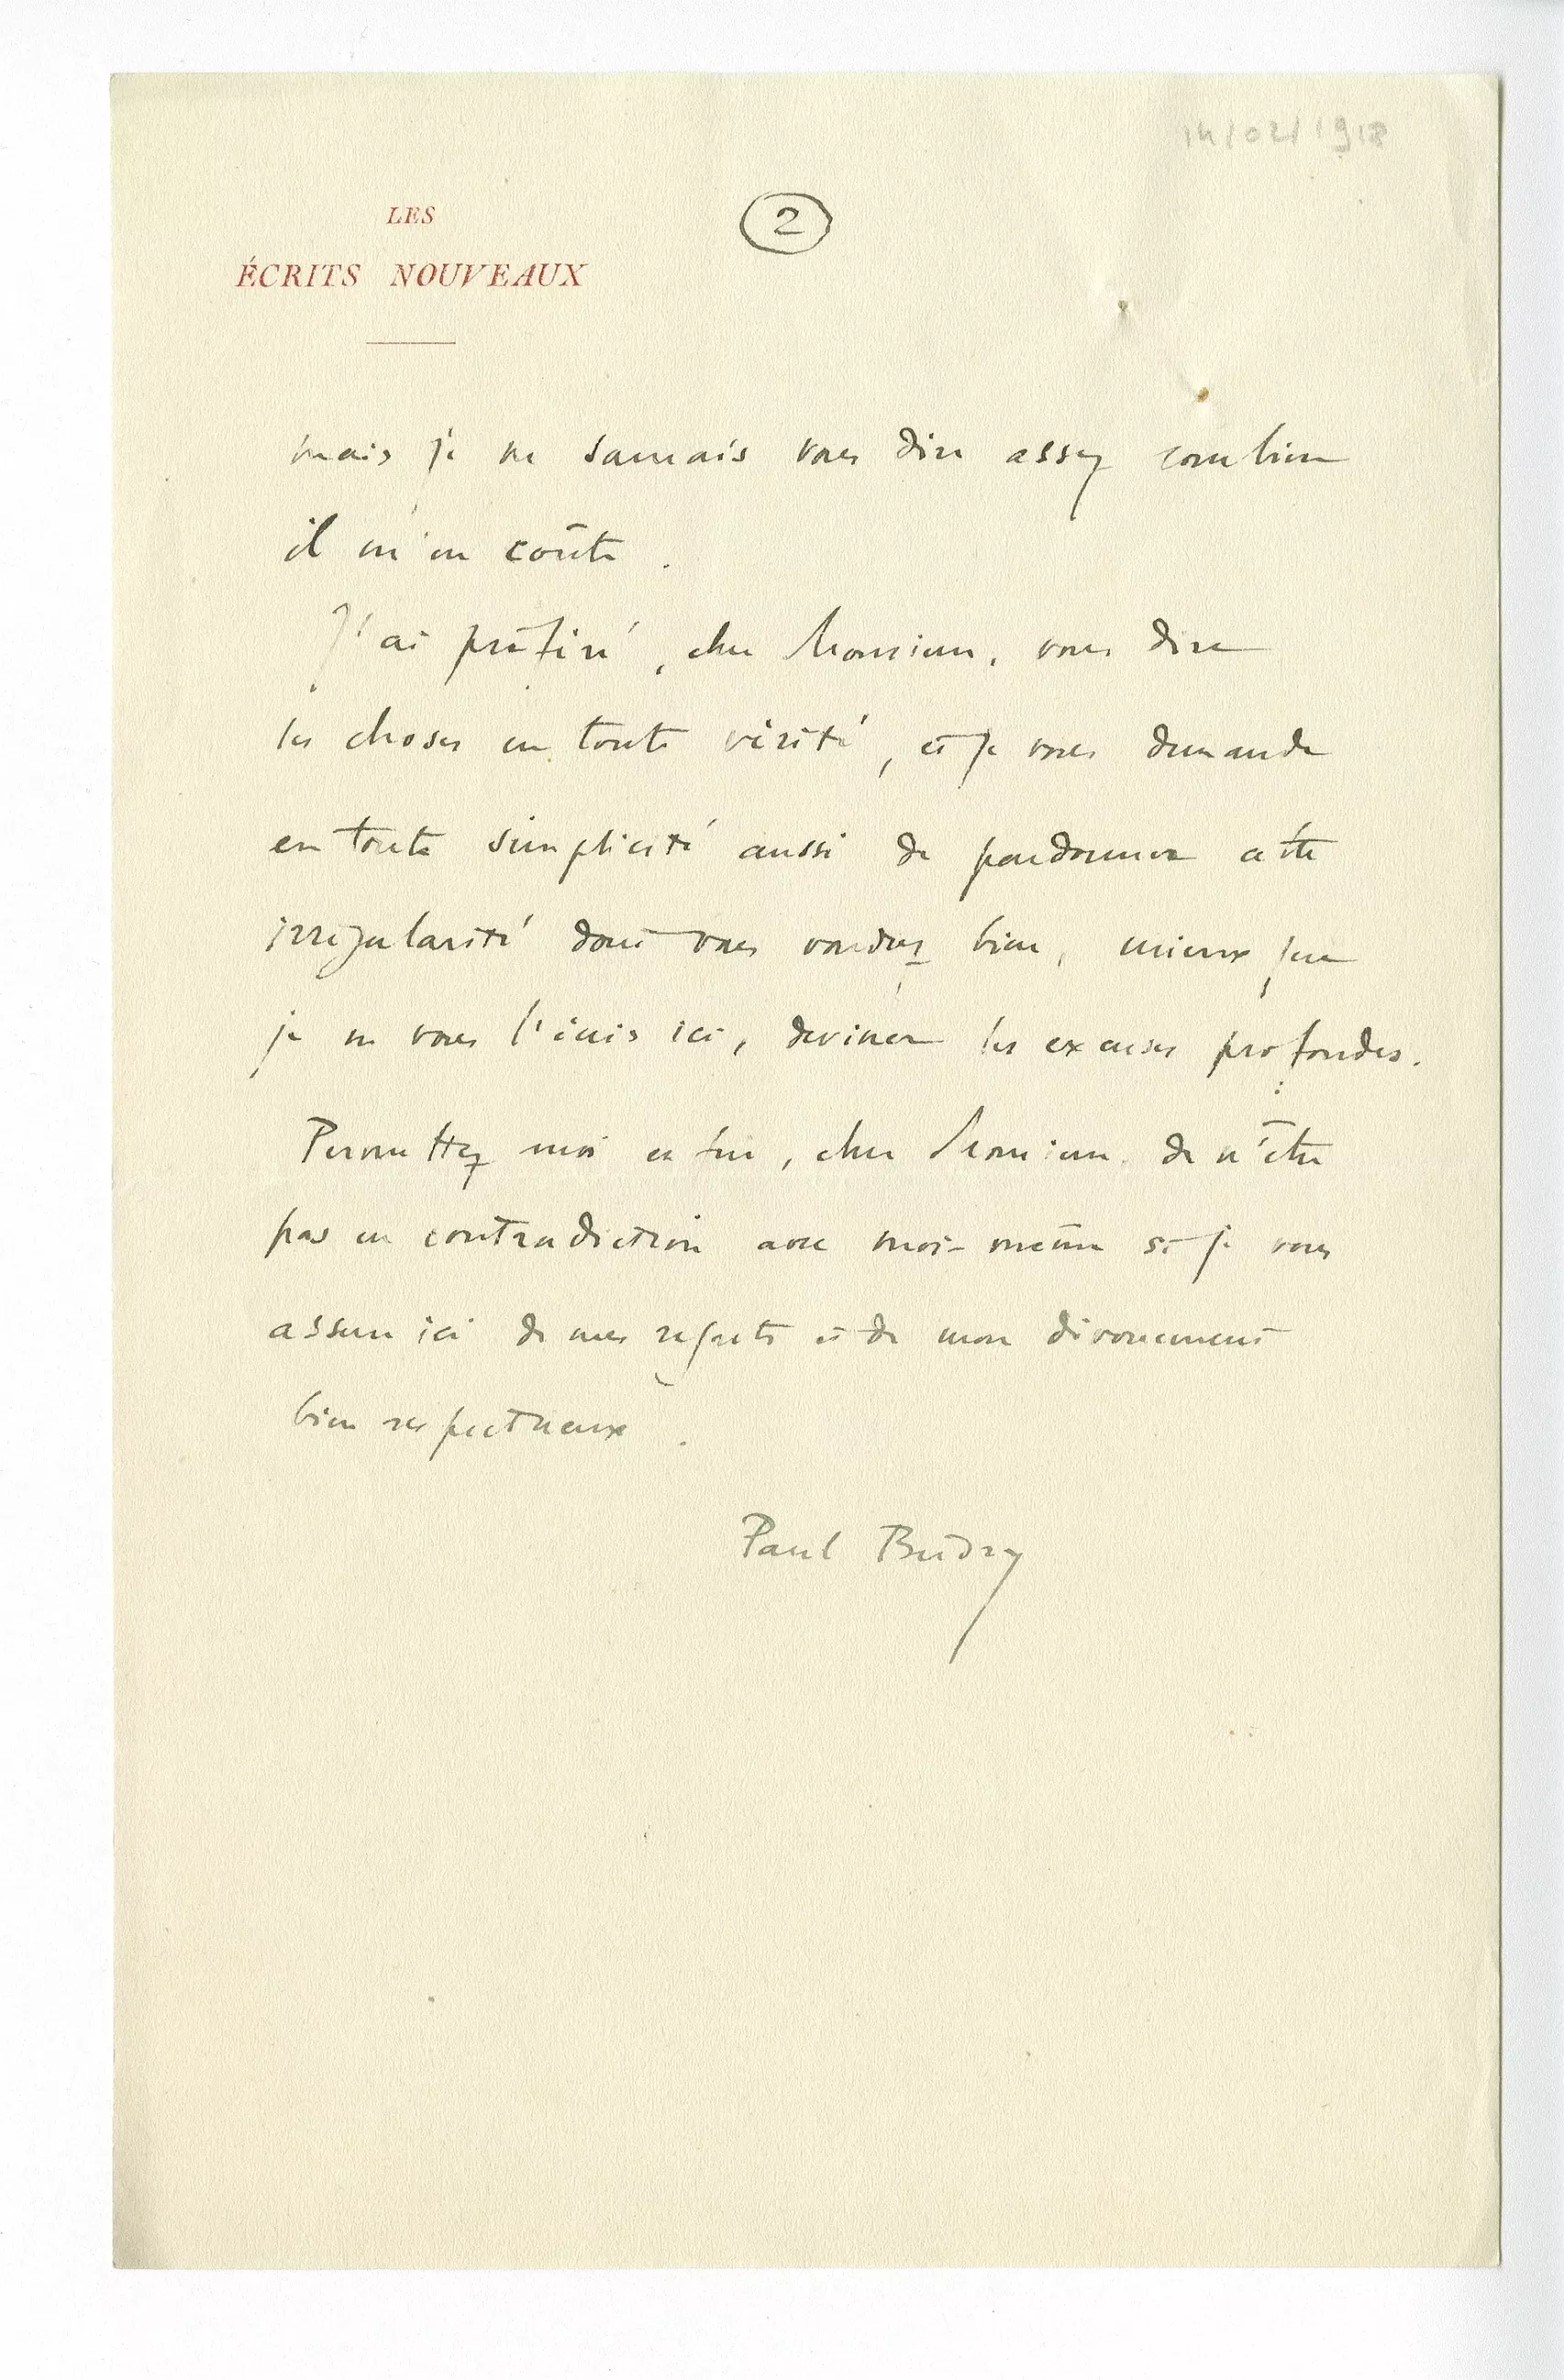 14/02/1918
LES
ÉCRITS NOUVEAUX
2
mais je ne saurais vous dire assez combien
il m'en coûte.
J'ai préféré, cher Monsieur, vous dire
les choses en toute vérité, et je vous demande
en toute simplicité aussi de pardonner cette
irrégularité dont vous voudrez bien, mieux que
je ne vous l'écris ici, deviner les excuses profondes.
Permettez moi enfin, cher Monsieur, de n'être
pas en contradiction avec moi-même si je vous
assure ici de mes regrets et de mon dévouement
bien respectueux.
Paul Budry